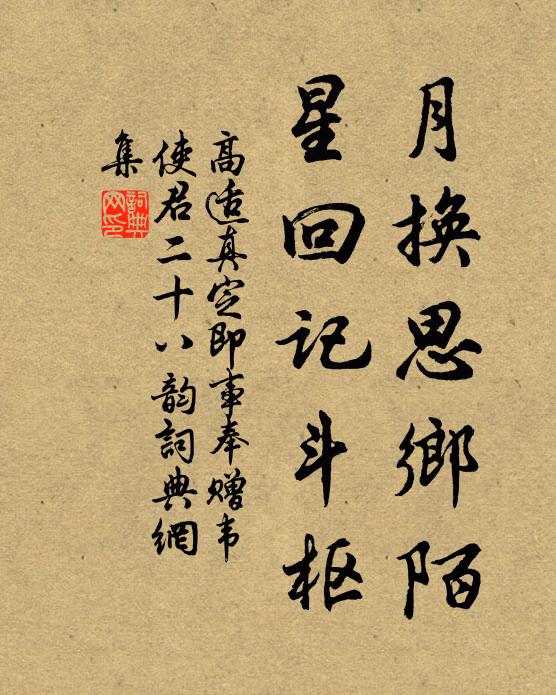 月换思鄉陌
星回记斗枢
高适真定即事奉赠韦
使君二十八韵詞典網
集
詞典网印